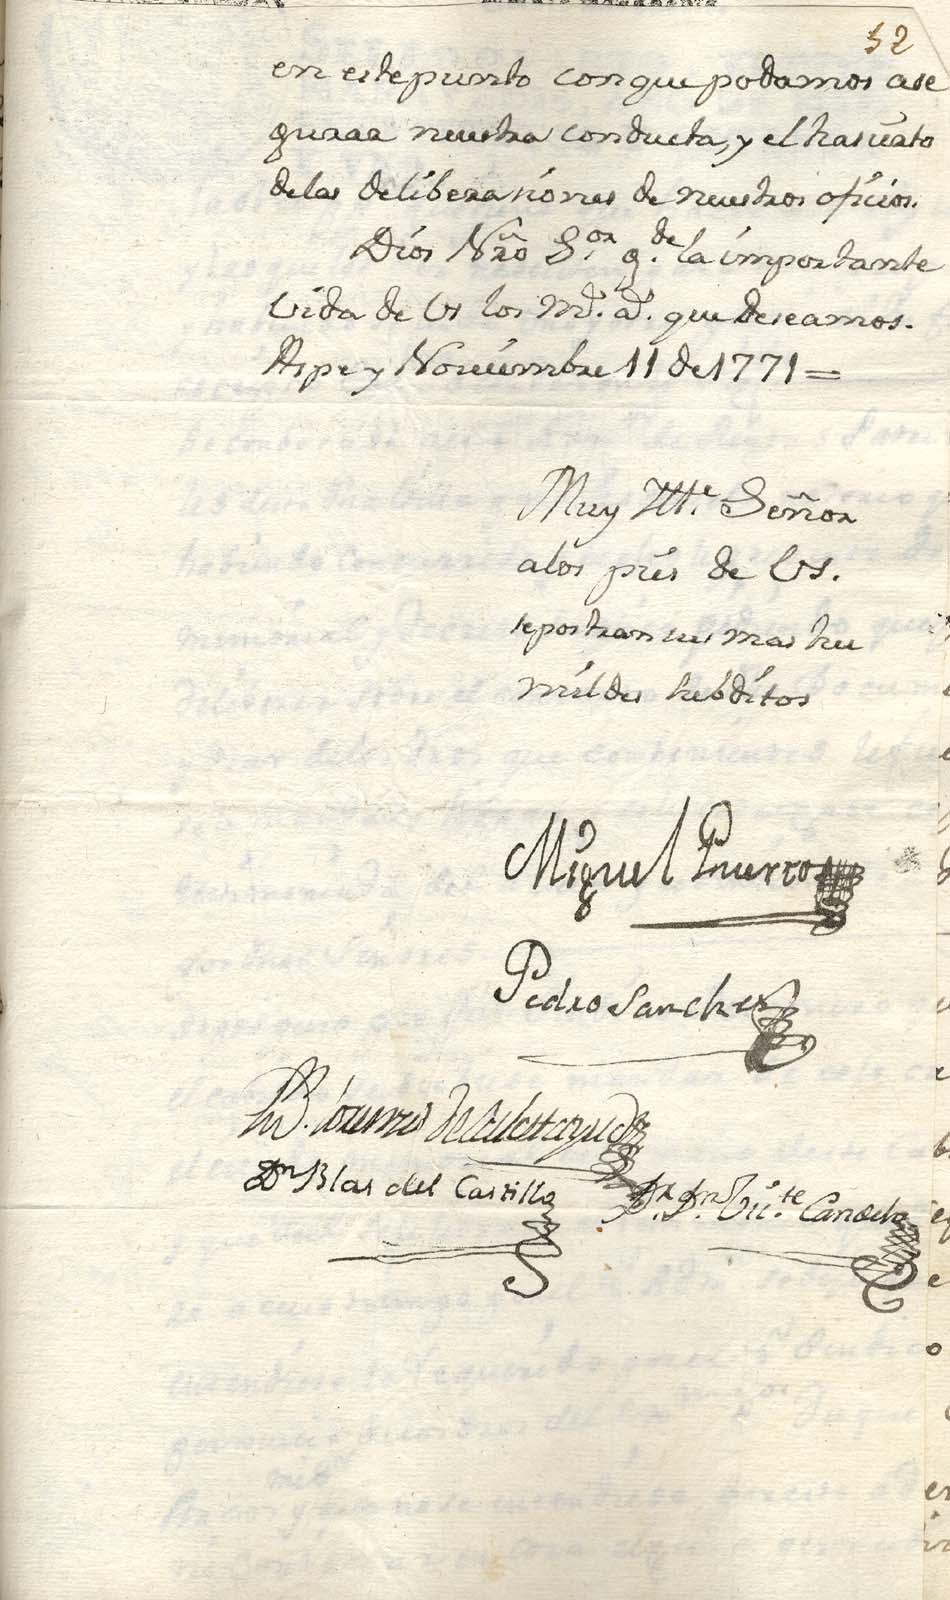 52
en este punto con que podamos ase
gurar nuestra conducta, y el
delas deliberaciones de nuestros oficios.
Dios Nrõ S.or g.de la importante
vida de Us los m.s a.s que deseamos.
Aspe y Noviembre 11 de 1771 =
Muy Ill.e Señor
alos pies de Us.
se postran sus mas hu
mildes subditos
Miguel Puerto
Pedro Sanchez
de Calatayud
Dn Blas del Castillo
D.r D.n Vic.te Candela